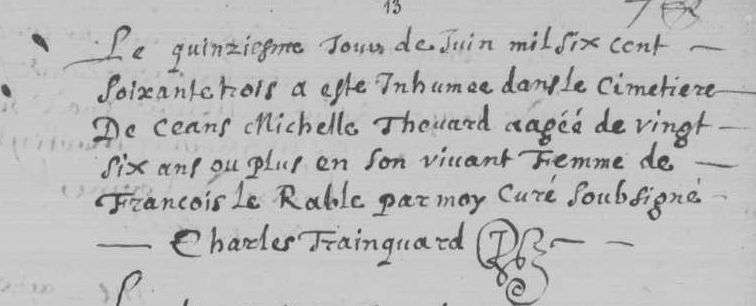 13
Le quinziesme Jour de Juin mil six cent
soixante trois a este Inhumee dans le Cimetiere
De Ceans Michelle Thouard aagéé de vingt
six ans ou plus en son viuant Femme de
Francois le Rable par moy Curé soubsigné
Charles Trainquard